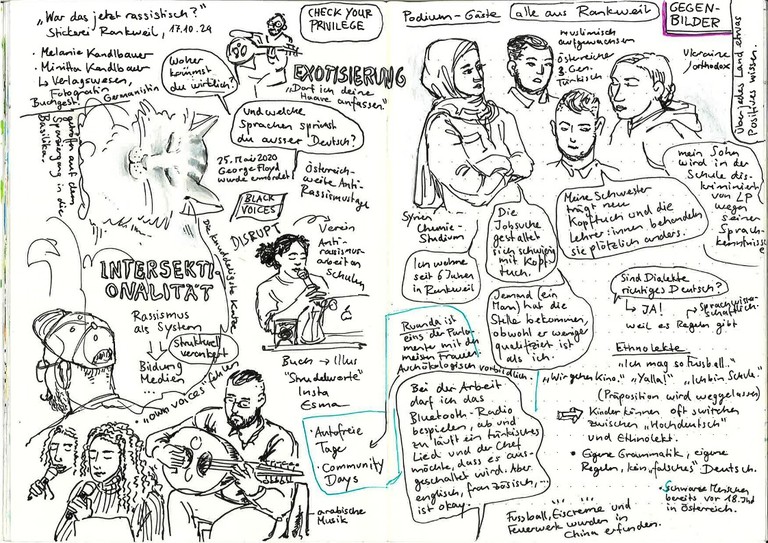 "War das jetzt rassistisch?"
Stickerei Rankweil, 17.10.24
• Melanie Kandlbauer
• Minitta Kandlbauer
↳ Verlagswesen,
Fotografin
Buchgest. Germanistin
CHECK YOUR
PRIVILEGE
Woher
kommst
du wirklich?
EXOTISIERUNG
"Darf ich deine
Haare anfassen"
Und welche
Sprachen sprichst
du ausser Deutsch?
25. Mai 2020
George Floyd
wurde ermordet
Österreich-
weite Anti-
Rassismustage
BLACK
VOICES
DISRUPT
Verein
Anti-
rassismus-
arbeit an
Schulen
getroffen auf dem
Spaziergang in die
Basilika.
INTERSEKTI-
ONALITÄT
Rassismus
als System
Strukturell
verankert
Bildung
Medien
...
"own voices" fehlen
Buch → Illus
"Strudelworte"
Insta
Esma
• Autofreie
Tage
• Community
Days
arabische
Musik
Podium-Gäste
alle aus Rankweil
GEGEN-
BILDER
Über jedes Land etwas
Positives wissen.
muslimisch
aufgewachsen
Österreicher
3. Gen.
Türkisch
Ukraine/
orthodox
mein Sohn
wird in der
Schule dis-
kriminiert
von LP
wegen
seiner
Sprach-
kenntnisse
Syrien
Chemie-
Studium
Ich wohne
seit 6 Jahren
in Rankweil
Die
Jobsuche
gestaltet
sich schwierig
mit Kopf-
tuch.
Meine Schwester
trägt neu
Kopftuch und die
Lehrer:innen behandeln
sie plötzlich anders.
Jemand (ein
Mann) hat die
Stelle bekommen,
obwohl er weniger
qualifiziert ist
als ich.
Sind Dialekte
richtiges Deutsch?
↳ JA! → Sprachwisse-
schaftlich
weil es Regeln gibt
Ruanda ist
eins der Parla-
mente mit den
meisten Frauen
Auch ökologisch vorbildlich.
Ethnolekte
"Ich mag so Fussball."
"Wir gehen Kino." "Yalla!" "Ich bin Schule."
(Präposition wird weggelassen)
⇒ Kinder können oft switchen
zwischen "Hochdeutsch"
und Ethnolekt.
• Eigene Grammatik, eigene
Regeln, kein "falsches" Deutsch.
• Schwarze Menschen
bereits vor 18. Jhd
in Österreich.
Bei der Arbeit
darf ich das
Bluetooth-Radio
bespielen, ab und
zu läuft ein türkisches
Lied und der Chef
möchte, dass es aus-
geschaltet wird. Aber
englisch, französisch,...
ist okay.
Fussball, Eiscreme und
Feuerwerk wurden in
China erfunden.